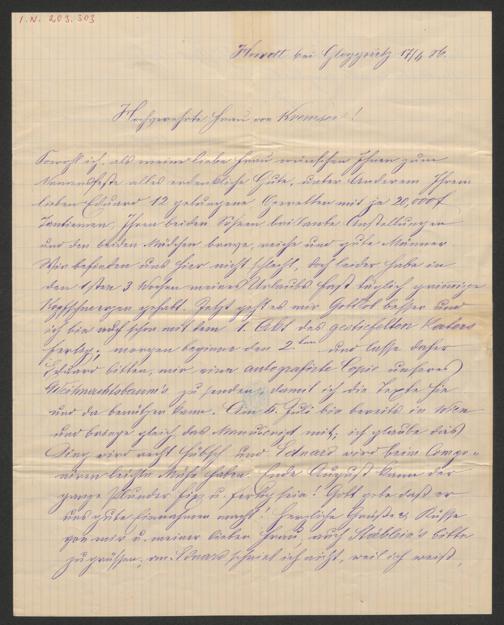 I.N. 203.303
bei Gloggnitz 17/6 86.
Hochverehrte Frau von Kremser!
Sowohl ich, als meine liebe Frau wünschen Ihnen zum
Namensfeste alles erdenkliche Gute, unter Anderem Ihrem
lieben Eduard 12 gelungene Operetten mit je 20,000 f
Tantiemen, Ihren beiden Söhnen brillante Anstellungen
und den beiden Mädchen brave, reiche und gute Männer
Wir befinden uns hier nicht schlecht, doch leider habe in
den ersten 3 Wochen meines Urlaubs fast täglich
Kopfschmerzen gehabt. Jetzt geht es mir Gottlob besser und
ich bin auch schon mit dem 1. Akt des gestiefelten Katers
fertig; morgen beginne den 2ten und lasse daher
Eduard bitten, mir eine autografirte Copie unseres
Weihnachtsbaum's zu senden, damit ich die Texte hie
und da benützen kann. Am 6. Juli bin bereits in Wien
und bringe gleich das Manuscript mit, ich glaube das
Ding wird recht hübsch und Eduard wird beim Compo-
niren leichte Mühe haben. Ende August kann der
ganze Plunder fix u. fertig sein! Gott gebe daß er
uns gute Einnahmen macht! Herzliche Grüße & Küsse
von mir u. meiner lieben Frau, auch Stäblein's bitte
zu grüßen, an schrieb ich nicht, weil ich weiß,